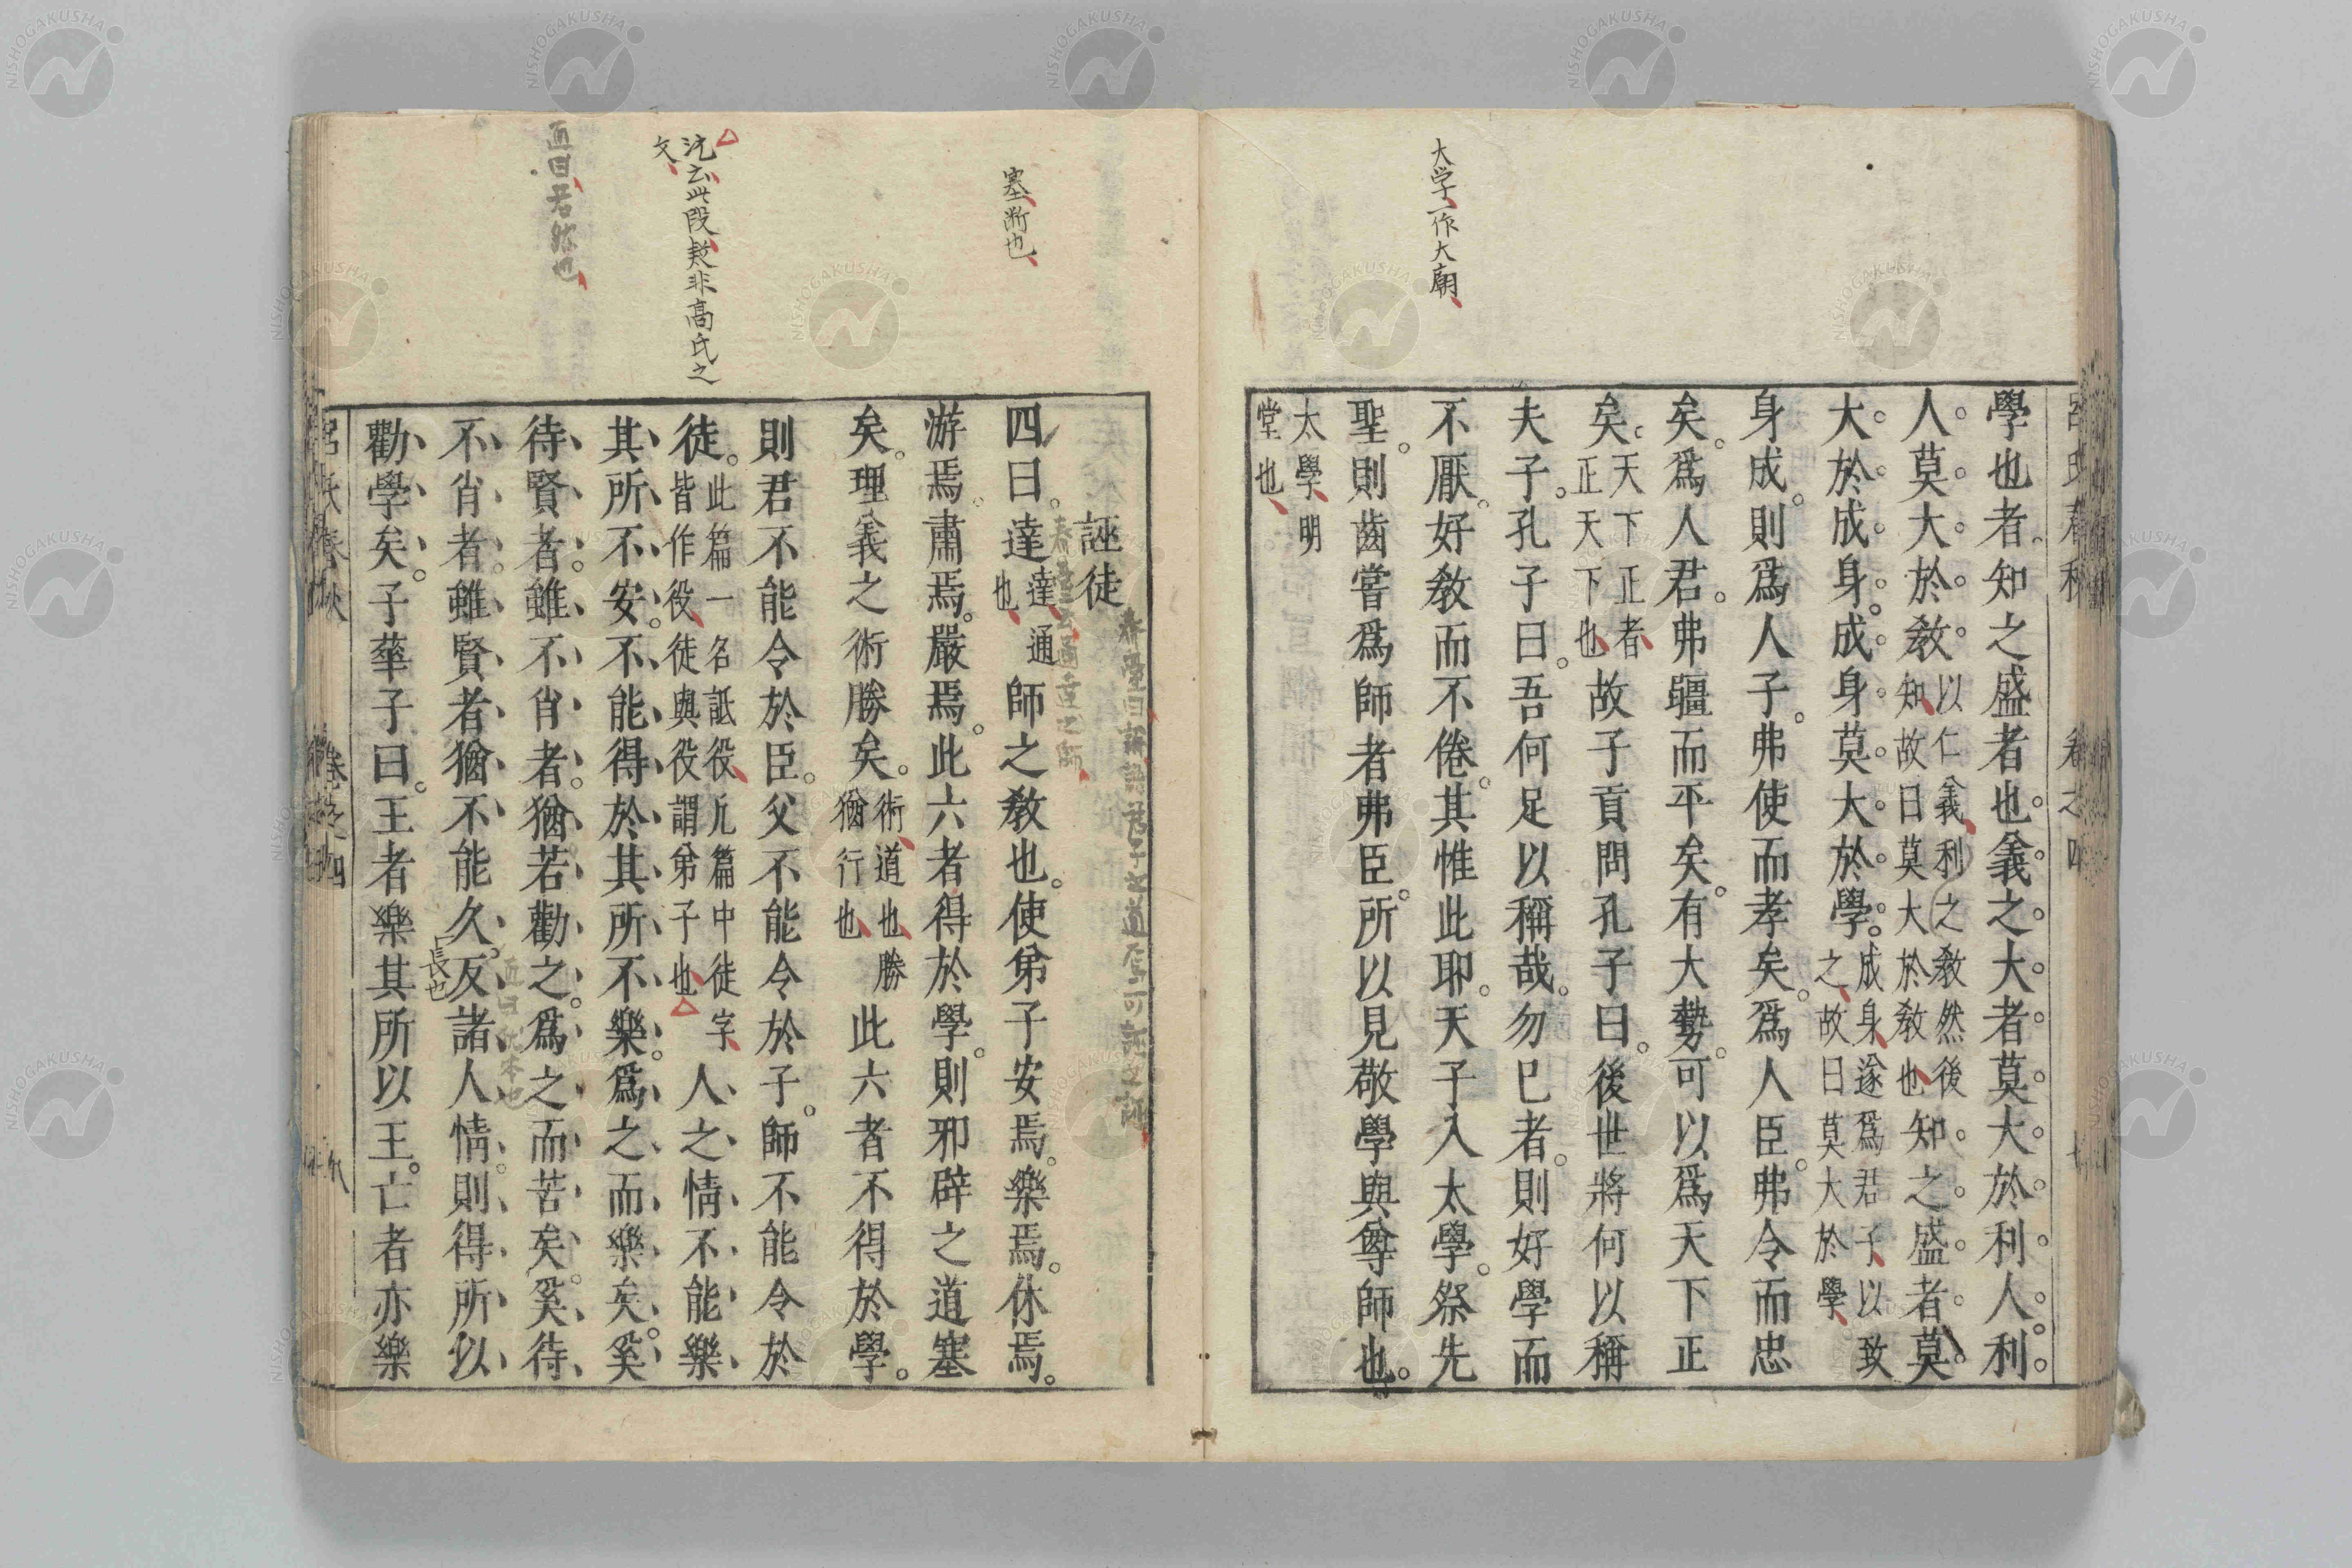 大学一作大廟
學也者知之盛者也。義之大者。莫大於利人。利
人莫大於敎以仁義利之敎然後知故曰莫大於敎也知之盛者。莫
大於成身。成身莫大於學。成身遂爲君子以致之故曰莫大於學
身成。則爲人子。弗使而孝矣。爲人臣。弗令而忠
矣。爲人君。弗彊而平矣。有大勢。可以爲天下正
矣。天下正者正天下也故子貢問孔子曰。後世將何以稱
夫子。孔子曰。吾何足以稱哉。勿已者。則好學而
不厭。好敎而不倦。其惟此耶。天子入太學。祭先
聖。則齒嘗爲師者弗臣。所以見敬學與尊師也。
太學明堂也
塞断也
沈云此段疑非高氏之
文
直曰若然也
誣徒
四曰。達達通也師之敎也。使弟子安焉。樂焉。休焉。
游焉。肅焉。嚴焉。此六者得於學。則邪辟之道塞
矣。理義之術勝矣。術道也勝猶行也此六者不得於學。
則君不能令於臣。父不能令於子。師不能令於
徒。此篇一名詆役凡篇中徒字皆作役徒與役謂弟子也人之情不能樂
其所不安。不能得於其所不樂。爲之而樂矣。奚
待賢者。雖不肖者。猶若勸之。爲之而苦矣。奚待
不肖者。雖賢者猶不能久。反諸人情。則得所以
長也
勸學矣。子華子曰。王者樂其所以王。亡者亦樂
呂氏春秋 卷之四
NISHOGAKUSHA